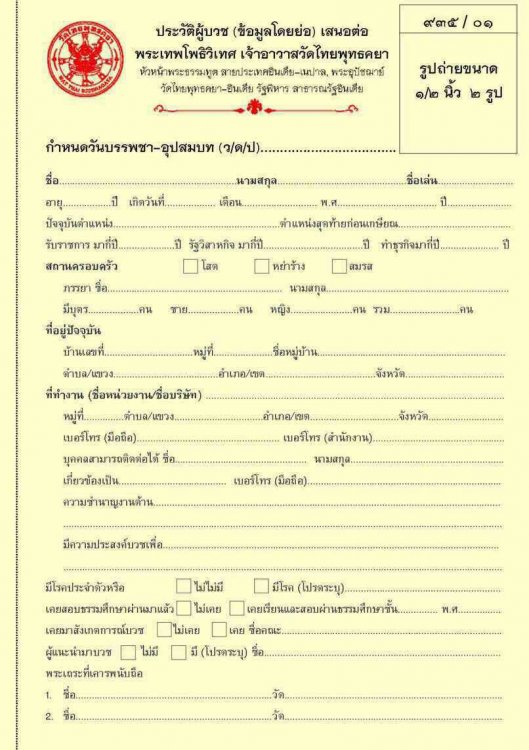 ประวัติผู้บวช (ข้อมูลโดยย่อ) เสนอต่อ
พระเทพโพธิวิเทศ เจ้าอาวาสวัดไทยพุทธคยา
หัวหน้าพระธรรมทูต สายประเทศอินเดีย-เนปาล, พระอุปัชฌาย์
วัดไทยพุทธคยา-อินเดีย รัฐพิหาร สาธารณรัฐอินเดีย
๙๓๕ / ๐๑
รูปถ่ายขนาด
๑/๒ นิ้ว ๒ รูป
วัดไทยพุทธคยา
WAT THAI BUDDHAGAYA
กำหนดวันบรรพชา-อุปสมบท (ว/ด/ป)..................................
ชื่อ..........นามสกุล..........ชื่อเล่น..........
อายุ..........ปี เกิดวันที่.......... เดือน..........พ.ศ........... ปี..........
ปัจจุบันตำแหน่ง..........ตำแหน่งสุดท้ายก่อนเกษียณ..........
รับราชการ มากี่ปี..........ปี รัฐวิสาหกิจ มากี่ปี..........ปี ทำธุรกิจมากี่ปี.......... ปี
สถานครอบครัว โสด หย่าร้าง สมรส
ภรรยา ชื่อ.......... นามสกุล..........
มีบุตร..........คน ชาย..........คน หญิง..........คน รวม..........คน
ที่อยู่ปัจจุบัน
บ้านเลขที่..........หมู่ที่..........ชื่อหมู่บ้าน..........
ตำบล/แขวง..........อำเภอ/เขต..........จังหวัด..........
ที่ทำงาน (ชื่อหน่วยงาน/ชื่อบริษัท) ..........
หมู่ที่..........ตำบล/แขวง..........อำเภอ/เขต..........จังหวัด..........
เบอร์โทร (มือถือ).......... เบอร์โทร (สำนักงาน)..........
บุคคลสามารถติดต่อได้ ชื่อ.......... นามสกุล..........
เกี่ยวข้องเป็น.......... เบอร์โทร (มือถือ)..........
ความชำนาญงานด้าน..........
มีความประสงค์บวชเพื่อ..........
มีโรคประจำตัวหรือ ไม่ไม่มี มีโรค (โปรดระบุ)..........
เคยสอบธรรมศึกษาผ่านมาแล้ว ไม่เคย เคยเรียนและสอบผ่านธรรมศึกษาชั้น.......... พ.ศ...........
เคยมาสังเกตการณ์บวช ไม่เคย เคย ชื่อคณะ..........
ผู้แนะนำมาบวช ไม่มี มี (โปรดระบุ) ชื่อ..........
พระเถระที่เคารพนับถือ
1. ชื่อ..........วัด..........
2. ชื่อ..........วัด..........